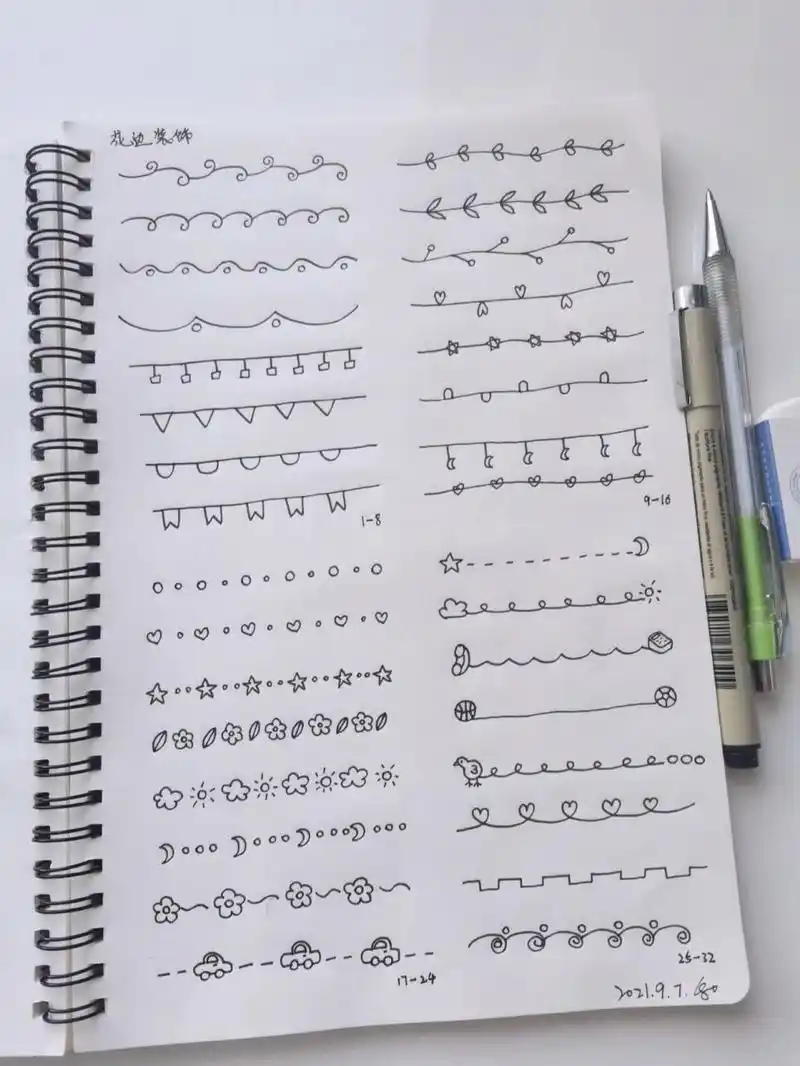 花边装饰
1-8
9-16
17-24
25-32
2021.9.7.